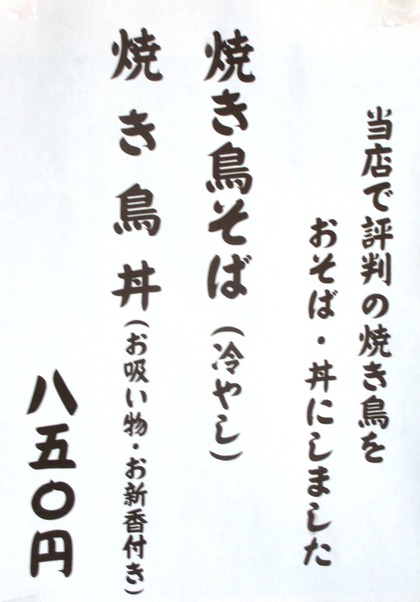 当店で評判の焼き鳥を
おそば・丼にしました
焼き鳥そば(冷やし)
焼き鳥丼(お吸い物・お新香付き)
八五〇円